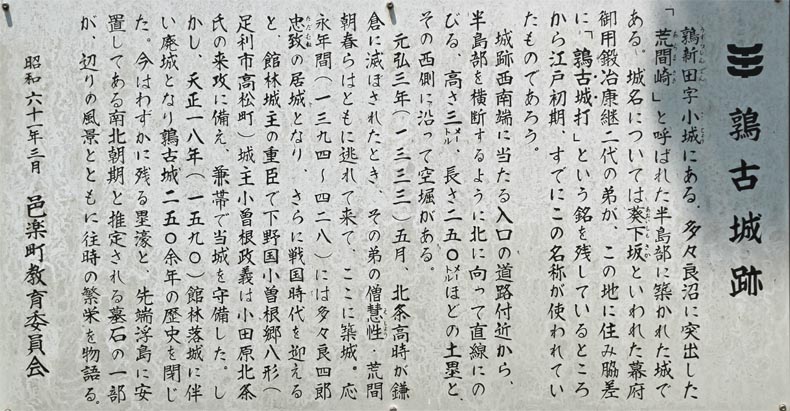 鶉古城跡
鶉新田字小城にある、多々良沼に突出した
「荒間崎」と呼ばれた半島部に築かれた城で
ある。城名については葵下坂といわれた幕府
御用鍛冶康継二代の弟が、この地に住み脇差
に「鶉古城打」という銘を残しているところ
から江戸初期、すでにこの名称が使われてい
たものであろう。
城跡西南端に当たる入口の道路付近から、
半島部を横断するように北に向って直線にの
びる、高さ三メートル、長さ二五〇メートルほどの土塁と
その西側に沿って空堀がある。
元弘三年(一三三三)五月、北条高時が鎌
倉に滅ぼされたとき、その弟の僧慧性・荒間
朝春らはともに逃れて来て、ここに築城。応
永年間(一三九四〜四二八)には多々良四郎
忠致の居城となり、さらに戦国時代を迎える
と、館林城主の重臣で下野国小曽根郷八形(
足利市高松町)城主小曽根政義は小田原北条
氏の来攻に備え、兼帯で当城を守備した。し
かし、天正一八年(一五九〇)館林落城に伴
い廃城となり鶉古城二五〇余年の歴史を閉じ
た。今はわずかに残る塁濠と、先端浮島に安
置してある南北朝期と推定される墓石の一部
が、辺りの風景とともに往時の繁栄を物語る。
昭和六十一年三月 邑楽町教育委員会